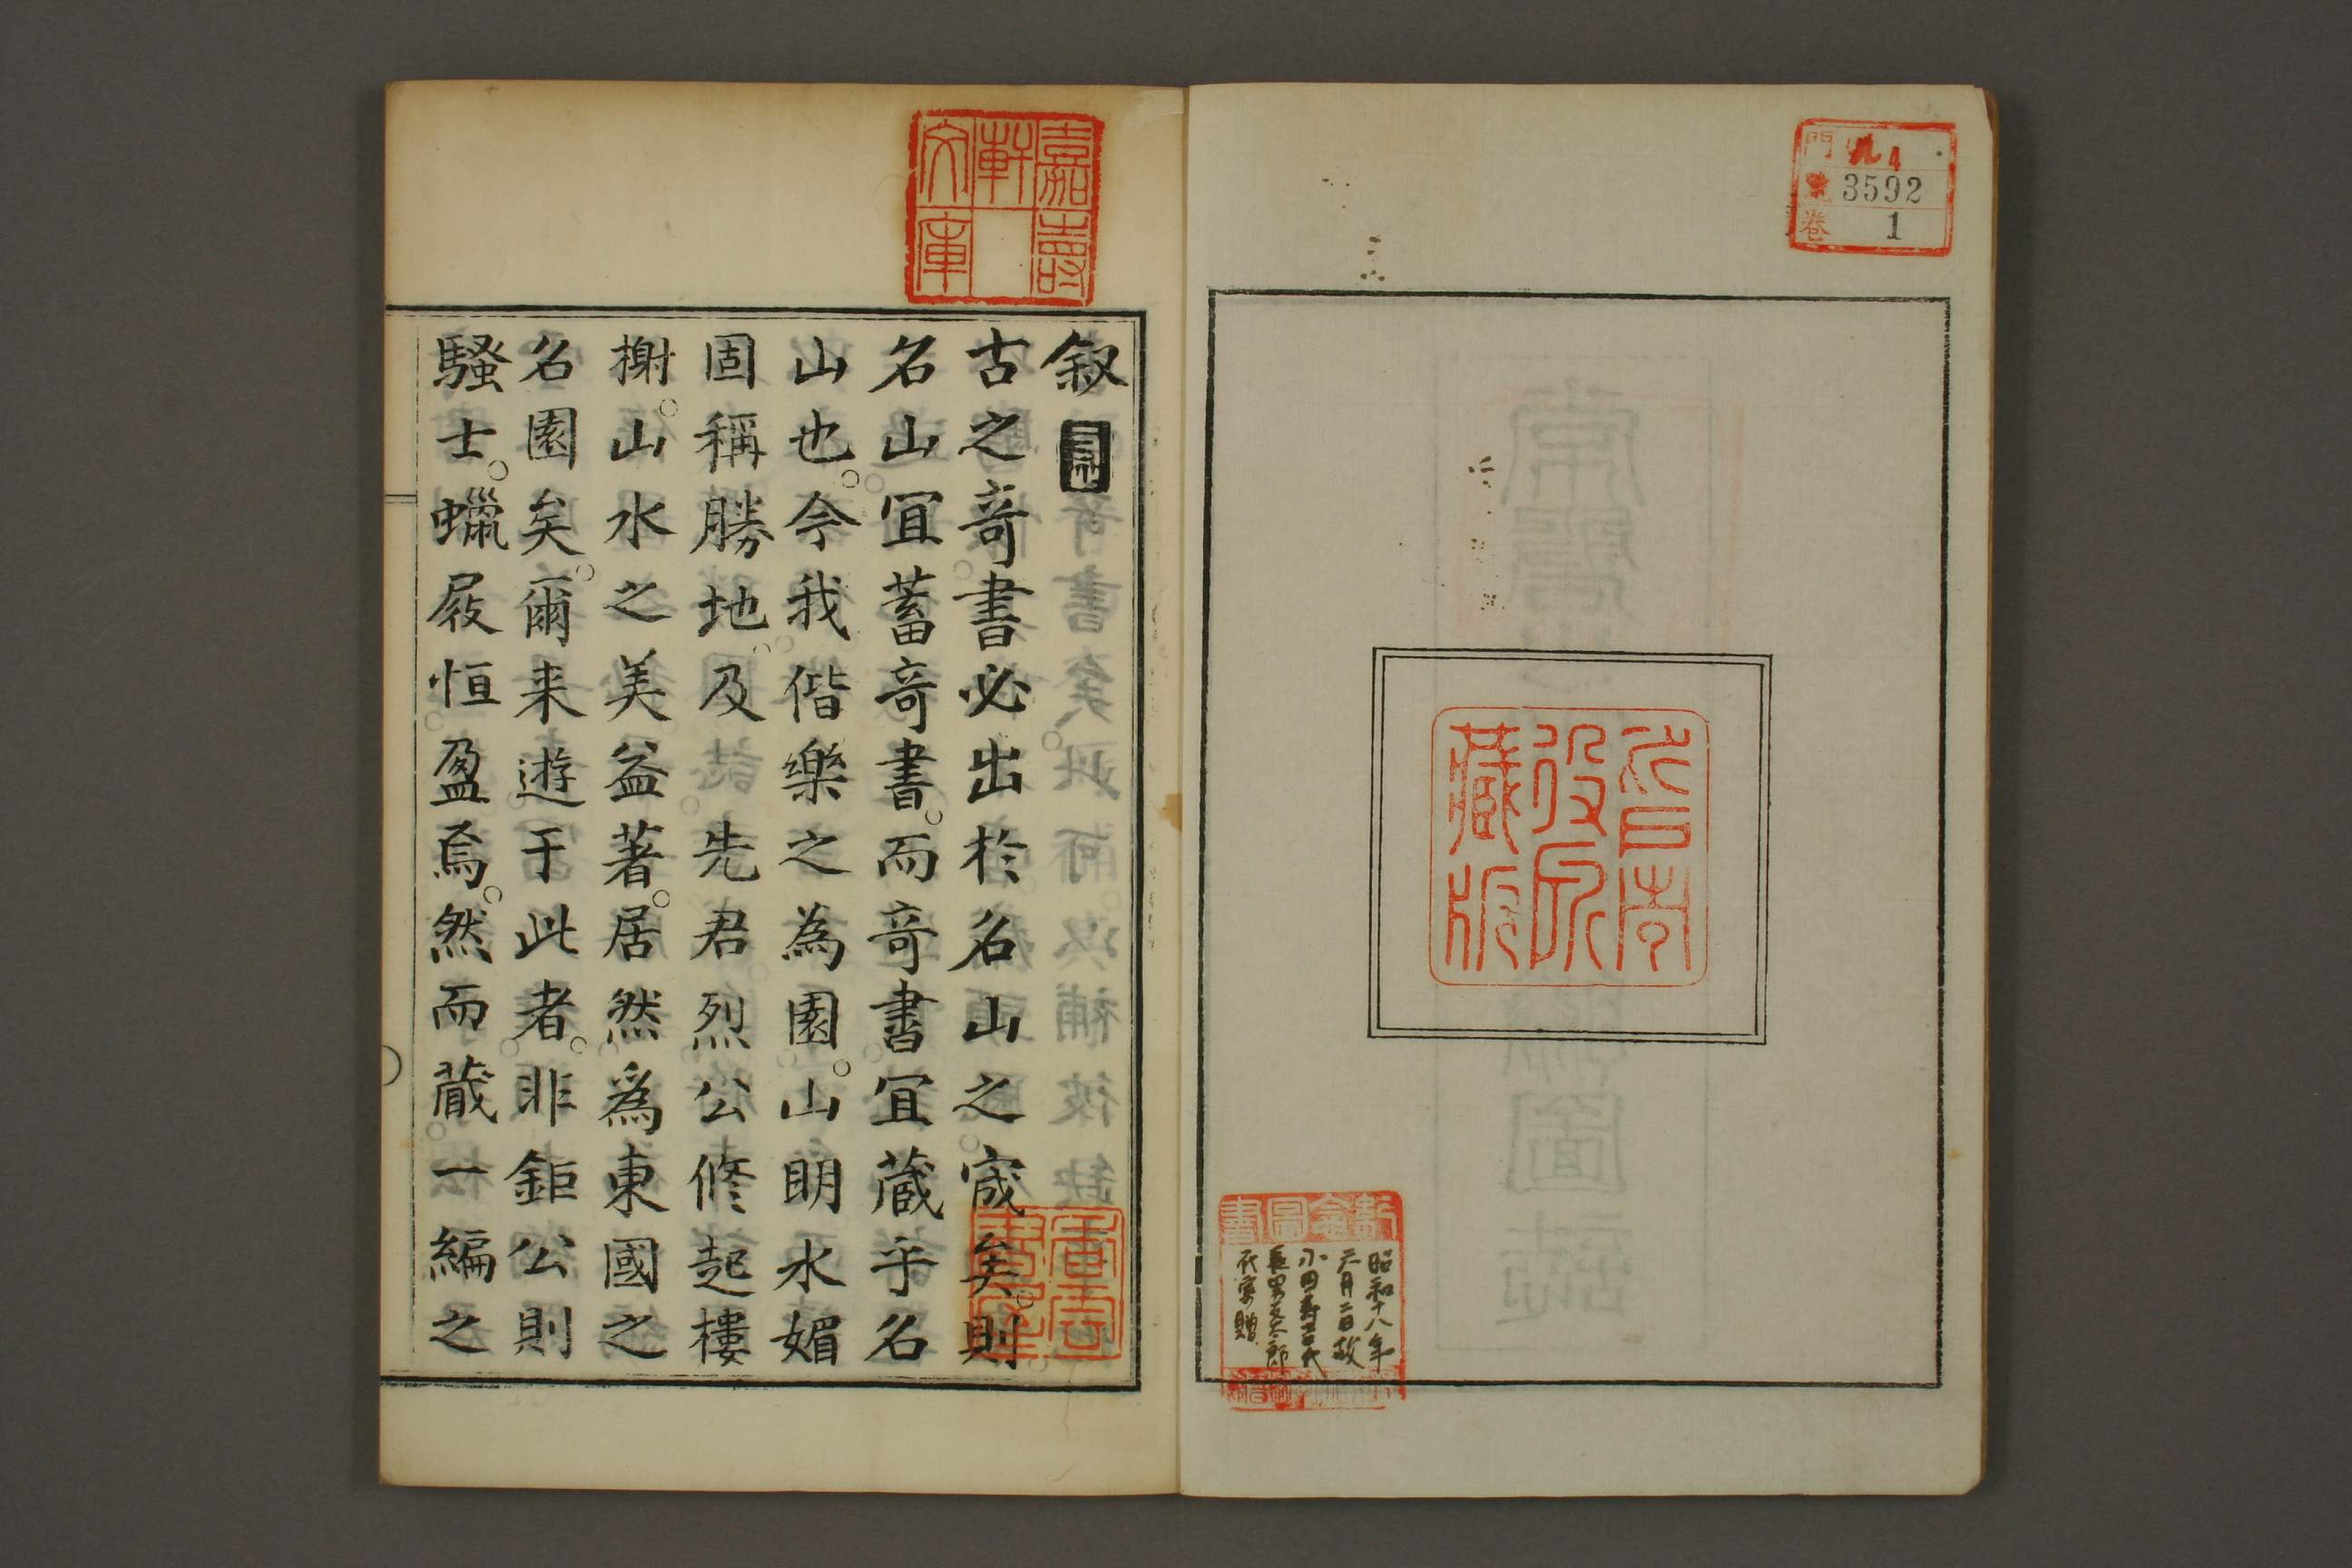 門 ル4
號 3592
卷 1
藏版
昭和十八年
六月二日故
小田壽吉氏
長男文太郎
氏寄贈
嘉壽
軒
文庫
叙
古之竒書必出於名山之宬矣。則
名山宜蓄竒書。而竒書宜蔵乎名
山也。今我偕樂之為園。山明水媚
固稱勝地。及 先君烈公修起樓
榭。山水之美益著。居然為東國之
名園矣。爾来遊于此者。非鉅公則
騷士。蠟屐恒盈焉。然而蔵一編之